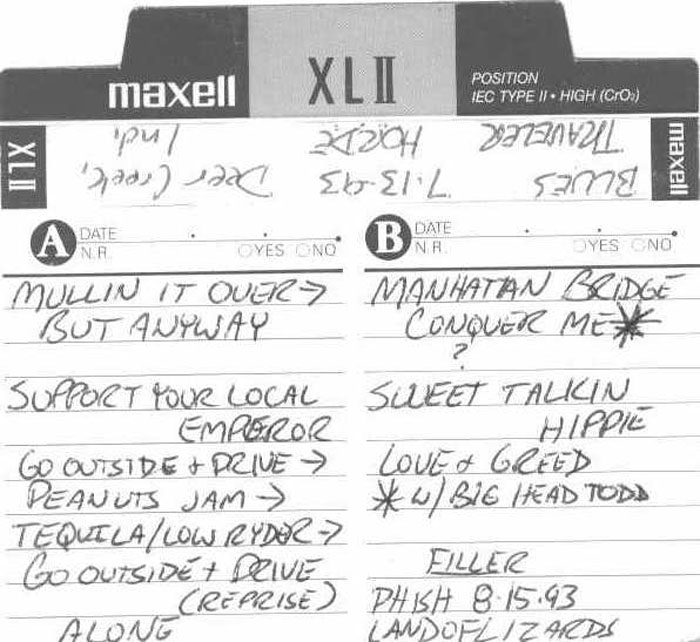 maxell
XLII
POSITION
IEC TYPE II • HIGH (CrO₂)
XLII
Deer Creek, Ind.
7·13·93 HORDE
BLUES TRAVELER
maxell
A DATE
N.R. YES NO
MULLIN IT OVER →
BUT ANYWAY
SUPPORT YOUR LOCAL
EMPEROR
GO OUTSIDE + DRIVE →
PEANUTS JAM →
TEQUILA/LOW RYDER →
GO OUTSIDE + DRIVE
(REPRISE)
ALONE
B DATE
N.R. YES NO
MANHATTAN BRIDGE
CONQUER ME*
?
SWEET TALKIN
HIPPIE
LOVE & GREED
* W/ BIG HEAD TODD
FILLER
PHISH 8·15·93
LANDOFLIZARDS